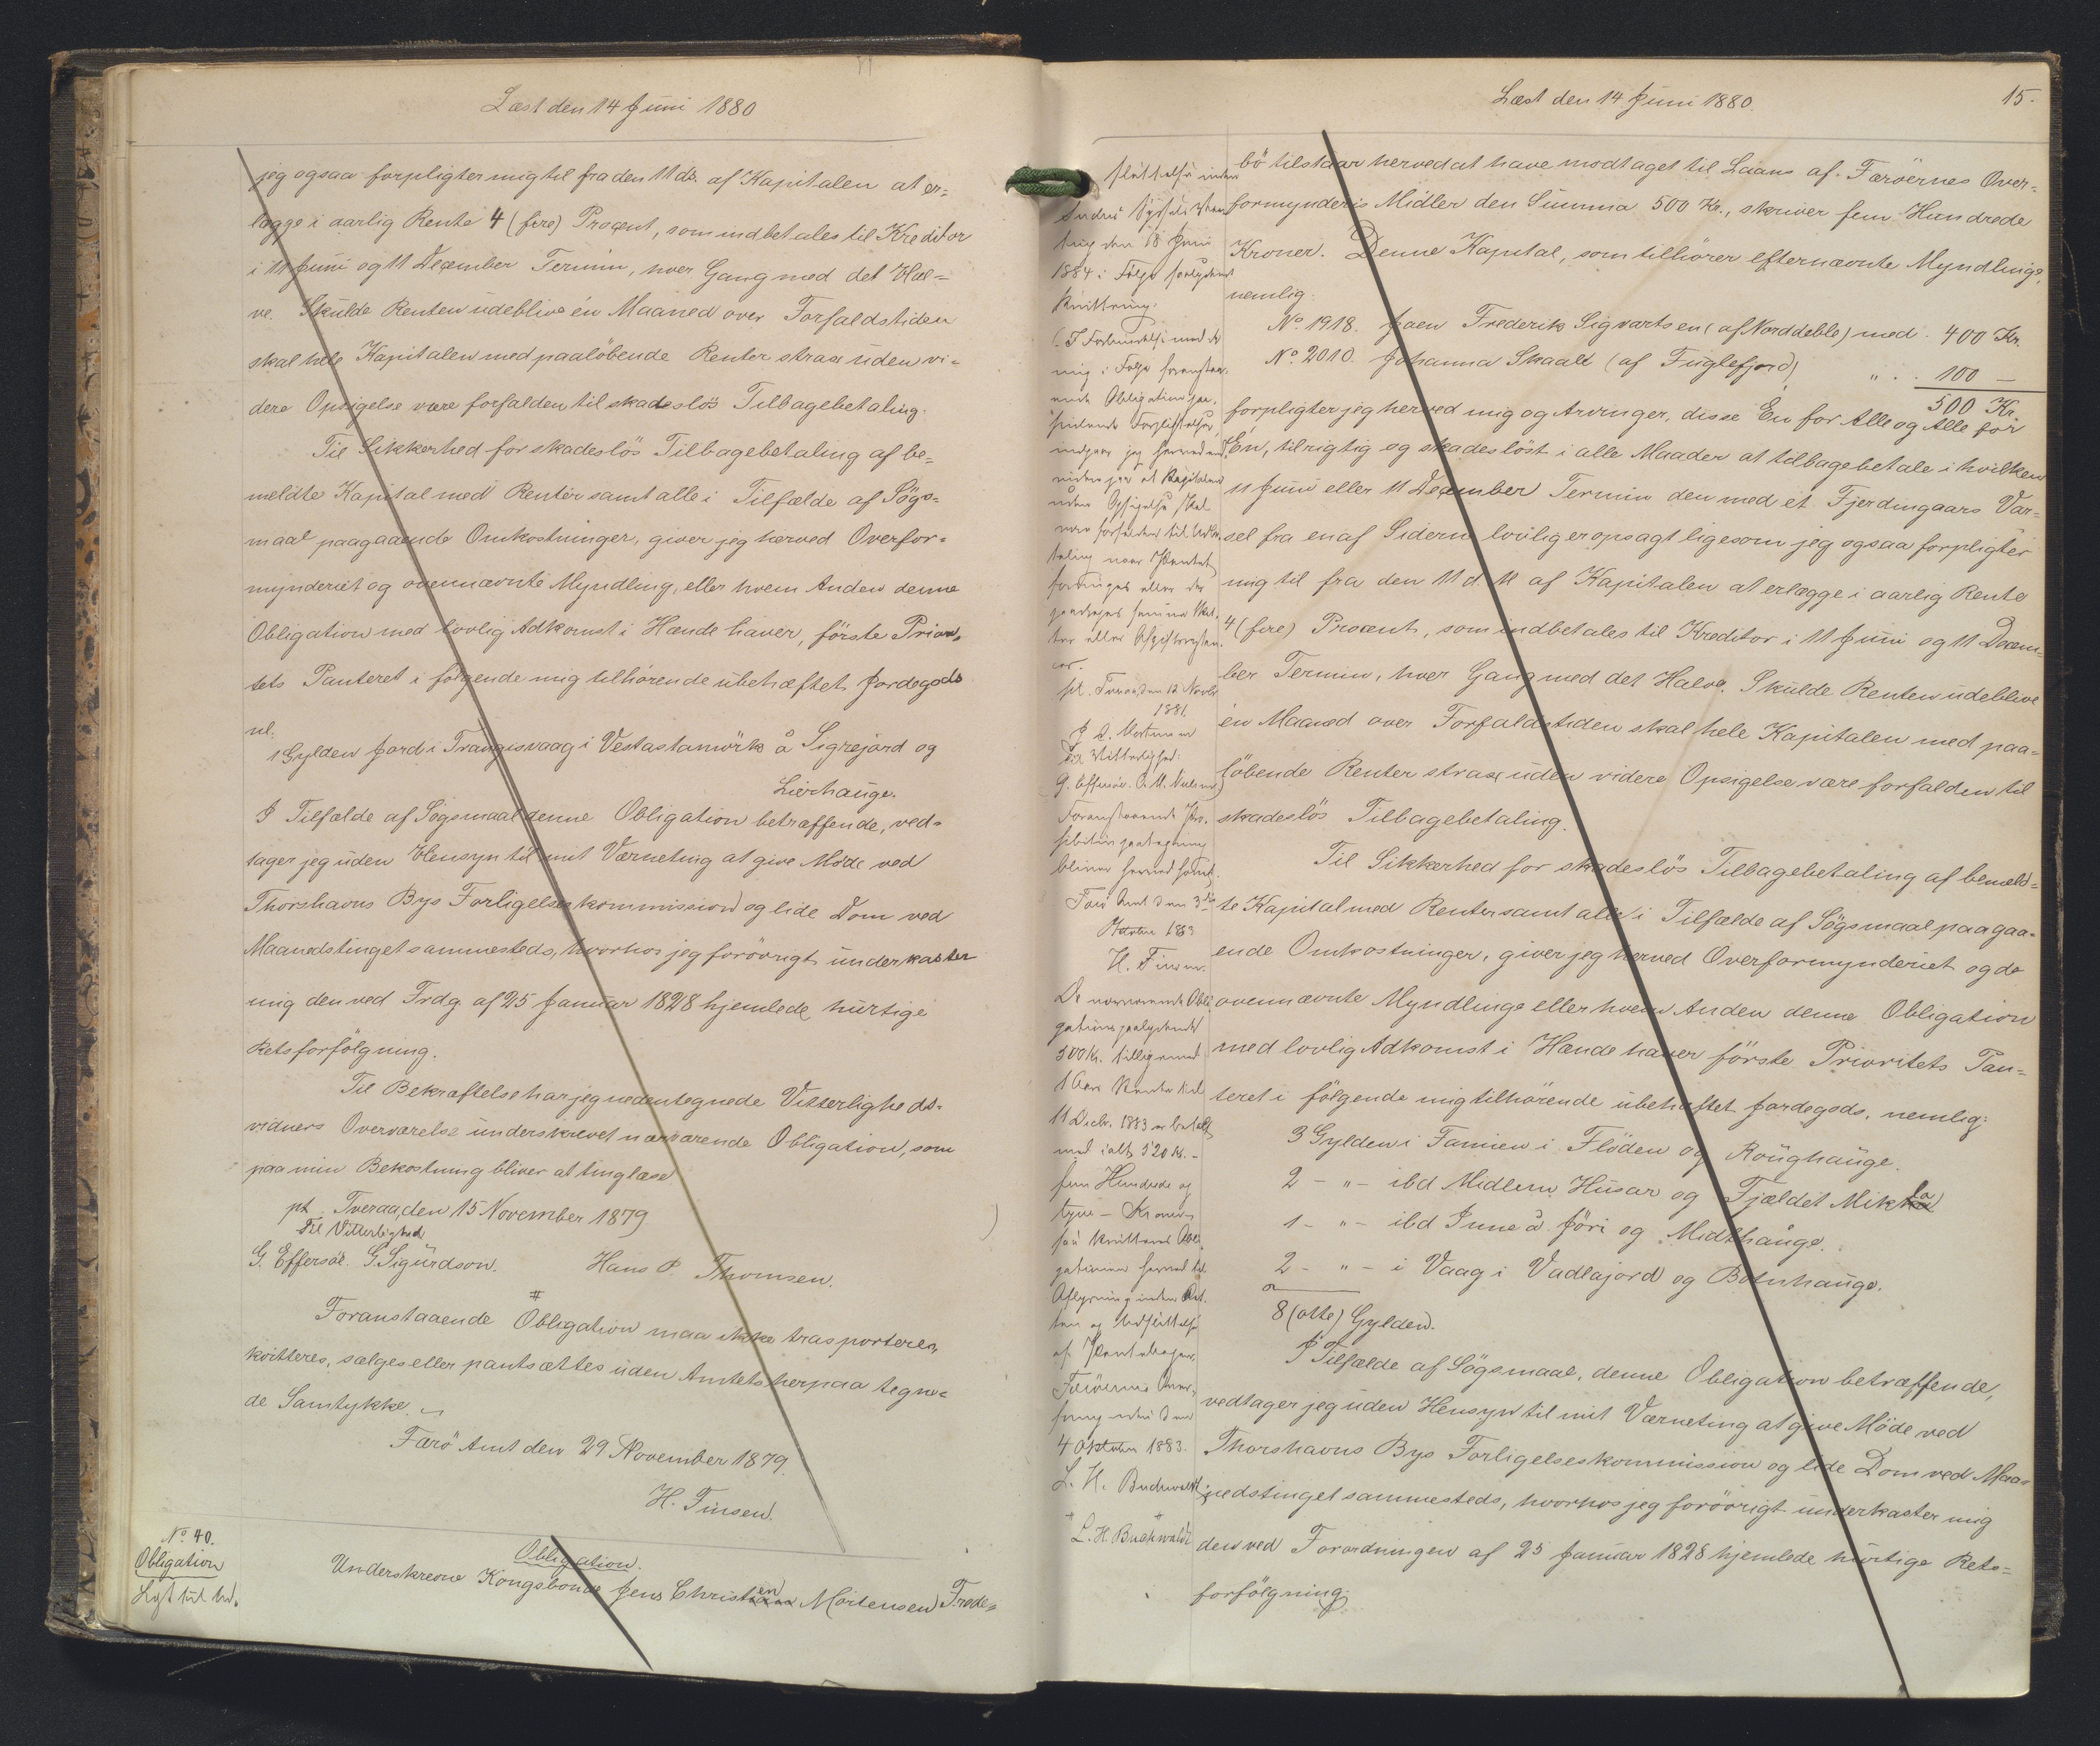 Læst den 14 Juni 1880
jeg ogsaa forpligter mig til fra den 11 ds. af Kapitalen at er=
lægge i aarlig Rente 4 (fire) Procent, som indbetales til Kreditor
i 11 Juni og 11 December Termin, hver Gang med det Hal=
ve. Skulde Renten udeblive én Maaned over Forfaldstiden
skal hele Kapitalen med paalöbende Renter strax uden vi=
dere Opsigelse være forfalden til skadeslös Tilbagebetaling.
Til Sikkerhed for skadeslös Tilbagebetaling af be=
meldte Kapital med Renter samt alle i Tilfælde af Sögs=
maal paagaaende Omkostninger, giver jeg herved Overfor=
mynderiet og ovennævnte Myndling, eller hvem Anden denne
Obligation med lovlig Adkomst i Hænde haver, förste Priori=
tets Panteret i fölgende mig tilhörende ubehæftet Jordegods
nl.
1 Gylden Jord i Trangisvaag i Vestastamörk å Sigrejord og
Lierhauge.
I Tilfælde af Sögsmaal denne Obligation betræffende, ved=
tager jeg uden Hensyn til mit Værneting at give Möde ved
Thorshavns Bys Forligelseskommission og lide Dom ved
Maanedstinget sammesteds, hvorhos jeg forövrigt underkaster
mig den ved Frdg. af 25 Januar 1828 hjemlede hurtige
Retsforfölgning.
Til Bekræftelse har jeg nedentegnede Vitterligheds=
vidners Overværelse underskrevet nærværende Obligation, som
paa min Bekostning bliver at tinglæse
pt. Tveraa, den 15 November 1879.
Til Vitterlighed
G. Effersöe. G. Sigurdson. Hans P. Thomsen.
Foranstaaende Obligation maa ikke transporteres,
kvitteres, sælges eller pantsættes uden Amtets herpaa tegne=
de Samtykke.
Færö Amt den 29 November 1879.
H. Finsen.
No 40.
Obligation
Obligation.
Underskrevne Kongsbonde Jens Christen Mortensen Frode=
Læst den 14 Juni 1880.
15.
bö tilstaar herved at have modtaget til Laans af Færöernes Over=
formynderis Midler den Summa 500 Kr., skriver fem Hundrede
Kroner. Denne Kapital, som tilhörer efternævnte Myndlinge,
nemlig:
No 1918. Joen Frederik Sigvartsen (af Norddeble) med . 400 Kr.
No 2010. Johanna Skaale (af Fuglefjord) " . . 100 —
500 Kr.
forpligter jeg herved mig og Arvinger, disse En for Alle og Alle for
Én, til rigtig og skadeslöst i alle Maader at tilbagebetale i hvilken
11 Juni eller 11 December Termin den med et Fjerdingaars Var=
sel fra en af Siderne lovlig er opsagt ligesom jeg ogsaa forpligter
mig til fra den 11 d. M. af Kapitalen at erlægge i aarlig Rente
4 (fire) Procent, som indbetales til Kreditor i 11 Juni og 11 Decem=
ber Termin, hver Gang med det Halve. Skulde Renten udeblive
én Maaned over Forfaldstiden skal hele Kapitalen med paa=
löbende Renter strax uden videre Opsigelse være forfalden til
skadeslös Tilbagebetaling.
Til Sikkerhed for skadeslös Tilbagebetaling af bemeld=
te Kapital med Renter samt alle i Tilfælde af Sögsmaal paagaa=
ende Omkostninger, giver jeg herved Overformynderiet og de
ovennævnte Myndlinge eller hvem Anden denne Obligation
med lovlig Adkomst i Hænde haver förste Prioritets Pan=
teret i fölgende mig tilhörende ubehæftet Jordegods, nemlig:
3 Gylden i Famien i Flöden og Röughauge.
2 - " - ibd Midlern Husar og Fjældet Mikla
1 - " - ibd Inne å Jöri og Midthauge.
2 - " - i Vaag i Vadlajord og Botnhauge.
8 (otte) Gylden.
I Tilfælde af Sögsmaal, denne Obligation betræffende,
vedtager jeg uden Hensyn til mit Værneting at give Möde ved
Thorshavns Bys Forligelseskommission og lide Dom ved Maa=
nedstinget sammesteds, hvorhos jeg forövrigt underkaster mig
den ved Forordningen af 25 Januar 1828 hjemlede hurtige Rets=
forfölgning.
den 18 Juni
1884 i Følge paalydende
Kvittering.
pt. Tveraa, den 12 Novbr
1881.
Til Vitterlighed:
G. Effersöe.
bliver herved hævet.
Færö Amt den 3die
Oktober 1883
H. Finsen.
De nærværende Obli=
gations paalydende
500 Kr. tilligemed
1 Aars Rente til
11 Decbr. 1883 er betalt
med ialt 520 Kr. -
fem Hundrede og
tyve - Kroner
4 Oktober 1883.
L. H. Buchwaldt
"L. H. Buchwaldt"